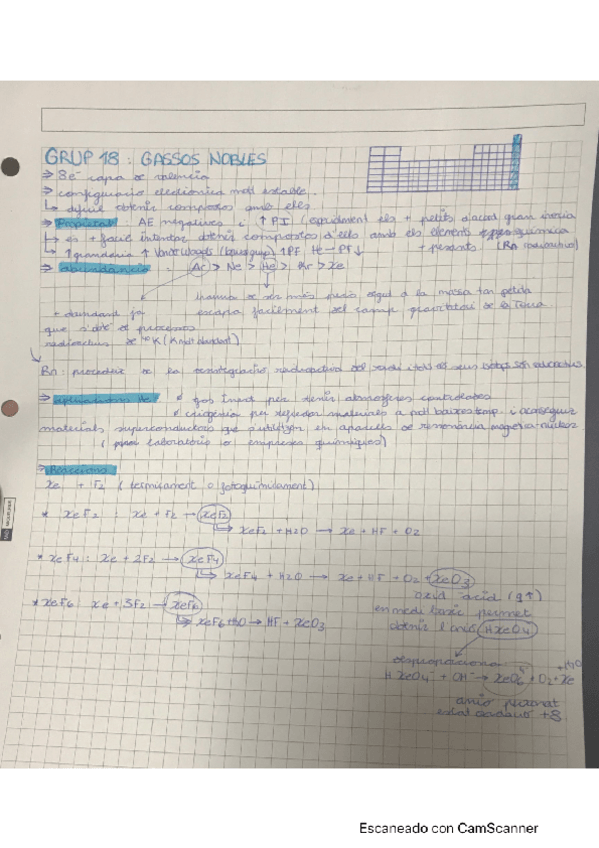 GRUP 18: GASSOS NOBLES
→ 8e⁻ capa de valència
→ configuració electrònica molt estable.
↳ difícil obtenir compostos amb ells
→ Propietats AE negatives i ↑PI (especialment els + petits d'acord gran inèrcia
↳ és + fàcil intentar obtenir compostos d'ells amb els elements + pesants (Rn radioactiu)
↳ ↑ grandària ↑ Van der Waals ↑PF He → PF↓
→ abundància: Ar > Ne > He > Kr > Xe
hauria de ser més però degut a la massa tan petita
escapa fàcilment del camp gravitatori de la Terra
+ abundant ja
que s'obté de processos
radioactius de ⁴⁰K (K molt abundant)
Rn: procedeix de la desintegració radioactiva del radi i tots els seus isòtops són radioactius
→ aplicacions He: gas inert per obtenir atmosferes controlades
criogènia per refredar materials a molt baixes temp. i aconseguir
materials superconductors que s'utilitzen en aparells de ressonància magnètica nuclear
( laboratoris o empreses químiques)
→ Reaccions
Xe + F₂ (tèrmicament o fotoquímicament)
* XeF₂: Xe + F₂ → XeF₂
↳ XeF₂ + H₂O → Xe + HF + O₂
* XeF₄: Xe + 2F₂ → XeF₄
↳ XeF₄ + H₂O → Xe + HF + O₂ + XeO₃
òxid àcid (g↑)
en medi bàsic permet
obtenir l'anió HXeO₄⁻
* XeF₆ Xe + 3F₂ → XeF₆
↳ XeF₆ + H₂O → HF + XeO₃
desproporciona
HXeO₄⁻ + OH⁻ → XeO₆⁴⁻ + O₂ + Xe + H₂O
anió perxenat
estat oxidació +8
Escaneado con CamScanner